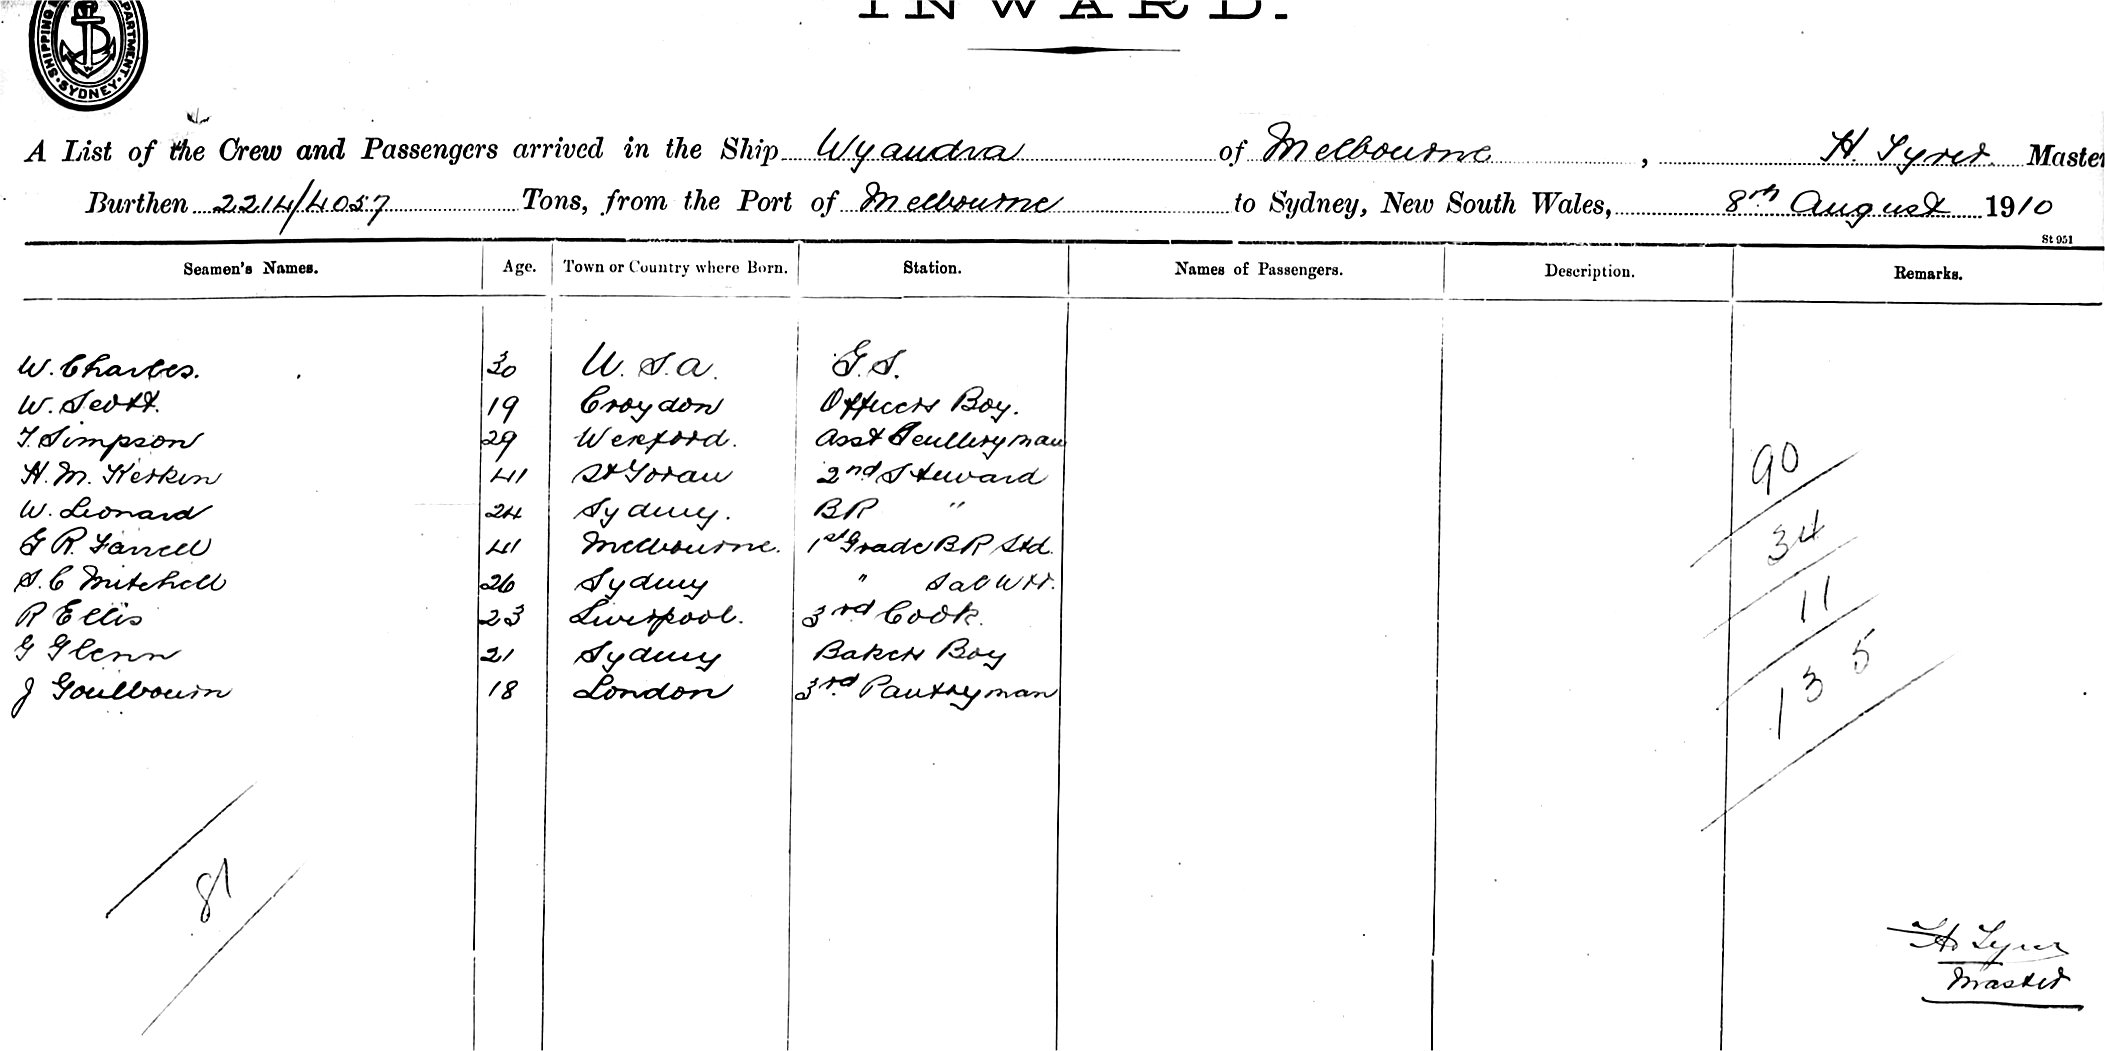 INWARD.
SHIPPING DEPARTMENT. SYDNEY
A List of the Crew and Passengers arrived in the Ship Wyandra of Melbourne, H. Tyrer. Master
Burthen 2214/4057 Tons, from the Port of Melbourne to Sydney, New South Wales, 8th August 1910
St 951
Seamen's Names. Age. Town or Country where Born. Station. Names of Passengers. Description. Remarks.
W. Charles. 30 U.S.A. G.S.
W. Scott. 19 Croydon Officers Boy.
T. Simpson 29 Wexford. Asst Sculleryman
H. M. Kerkin 41 St Goran 2nd Steward
W. Leonard 24 Sydney. BR "
G R. Farrell 41 Melbourne. 1st Grade BR Std.
S. C Mitchell 26 Sydney " Sal Wtr.
R Ellis 23 Liverpool. 3rd Cook.
G Glenn 21 Sydney Bakers Boy
J Goulbourn 18 London 3rd Pantryman
90
34
11
135
81
H Tyrer
Master